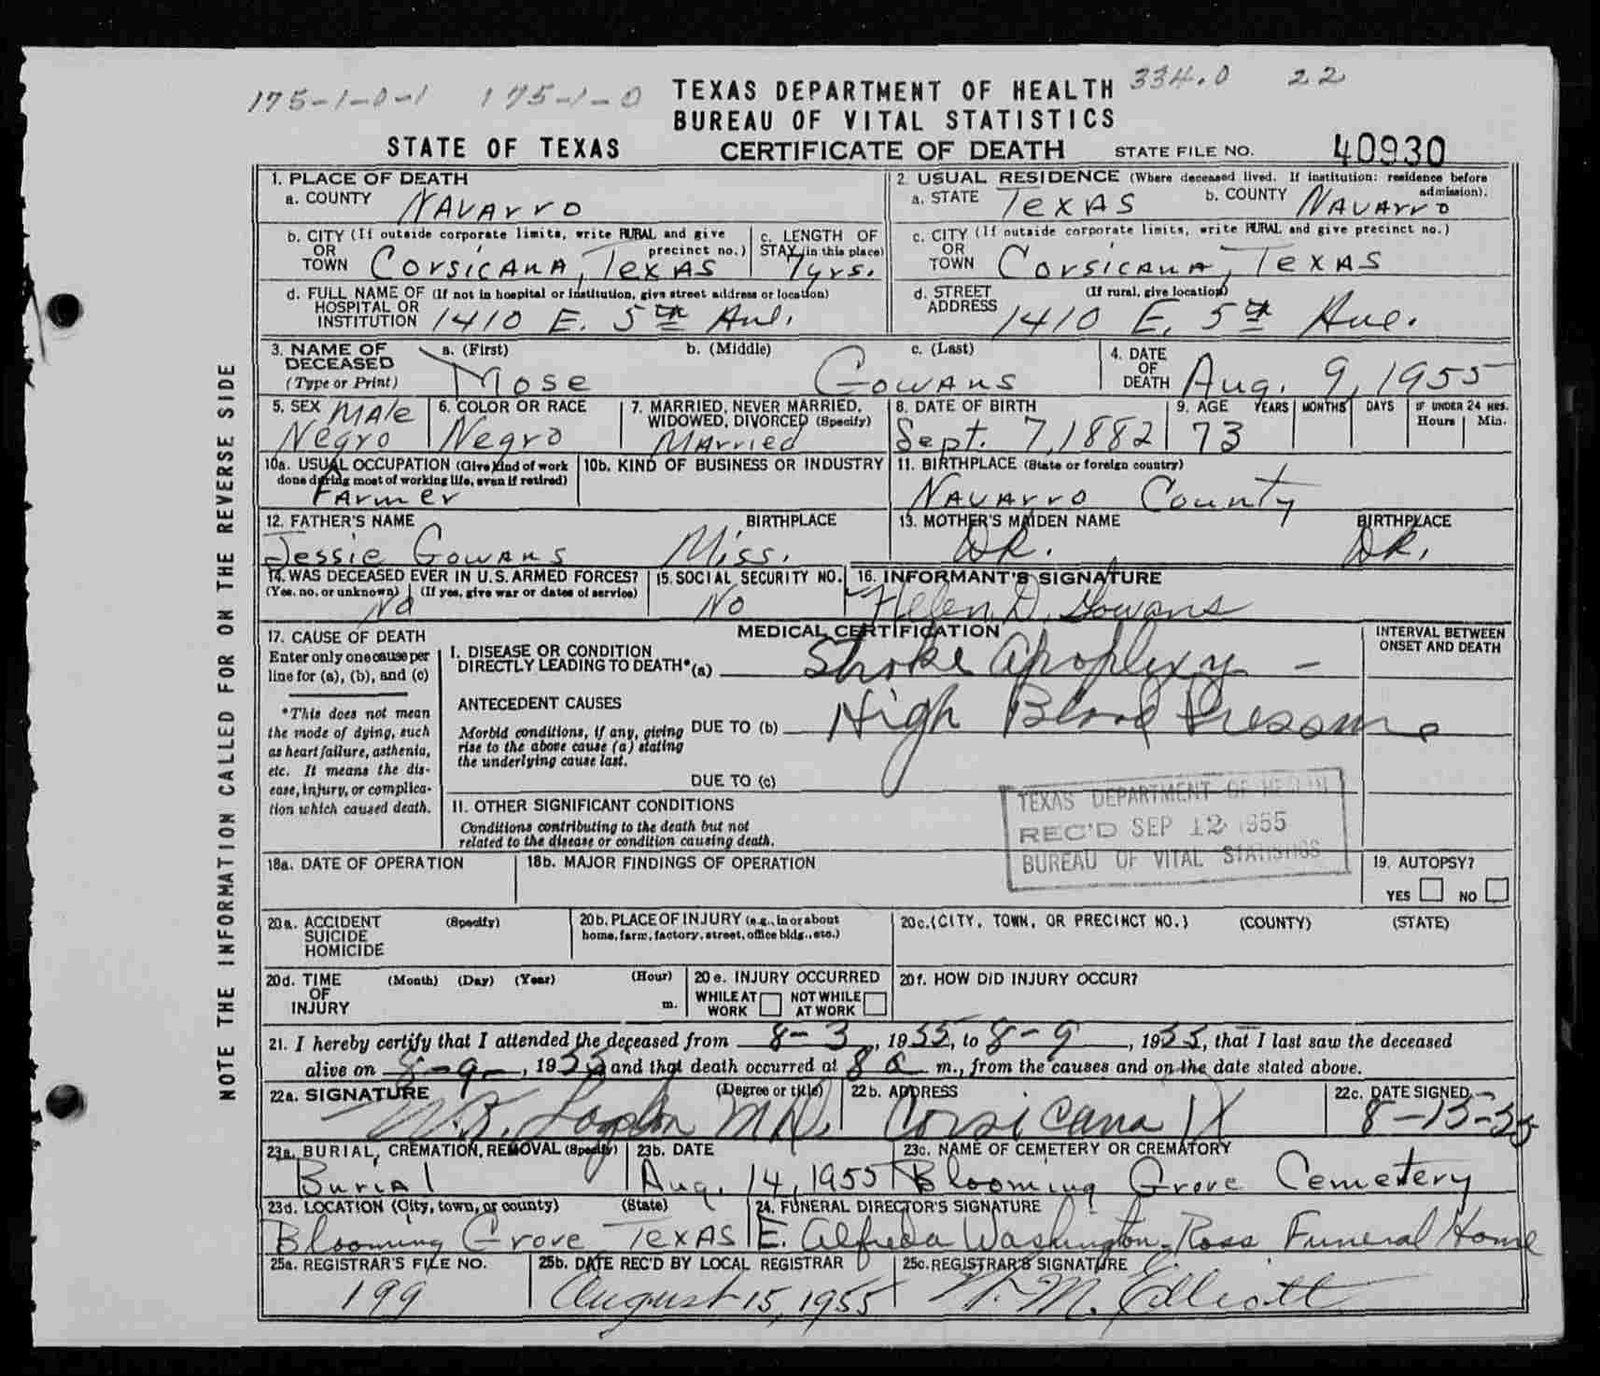 175-1-0-1 175-1-0 TEXAS DEPARTMENT OF HEALTH 334.0 22
BUREAU OF VITAL STATISTICS
STATE OF TEXAS CERTIFICATE OF DEATH STATE FILE NO. 40930
1. PLACE OF DEATH
a. COUNTY Navarro
2. USUAL RESIDENCE (Where deceased lived. If institution: residence before admission).
a. STATE Texas b. COUNTY Navarro
b. CITY (If outside corporate limits, write RURAL and give precinct no.)
OR
TOWN Corsicana, Texas
c. LENGTH OF
STAY (in this place)
7yrs.
c. CITY (If outside corporate limits, write RURAL and give precinct no.)
OR
TOWN Corsicana, Texas
d. FULL NAME OF (If not in hospital or institution, give street address or location)
HOSPITAL OR
INSTITUTION 1410 E. 5th Ave.
d. STREET (If rural, give location)
ADDRESS 1410 E. 5th Ave.
3. NAME OF a. (First) b. (Middle) c. (Last)
DECEASED
(Type or Print) Mose Gowans
4. DATE
OF
DEATH Aug. 9, 1955
5. SEX Male
Negro
6. COLOR OR RACE
Negro
7. MARRIED, NEVER MARRIED,
WIDOWED, DIVORCED (Specify)
Married
8. DATE OF BIRTH
Sept. 7, 1882
9. AGE YEARS MONTHS DAYS IF UNDER 24 HRS.
Hours Min.
73
10a. USUAL OCCUPATION (Give kind of work
done during most of working life, even if retired)
Farmer
10b. KIND OF BUSINESS OR INDUSTRY
11. BIRTHPLACE (State or foreign country)
Navarro County
12. FATHER'S NAME BIRTHPLACE
Jessie Gowans Miss.
13. MOTHER'S MAIDEN NAME BIRTHPLACE
DK. DK.
14. WAS DECEASED EVER IN U.S. ARMED FORCES?
(Yes, no, or unknown) (If yes, give war or dates of service)
No
15. SOCIAL SECURITY NO.
No
16. INFORMANT'S SIGNATURE
Helen D. Gowans
17. CAUSE OF DEATH
Enter only one cause per
line for (a), (b), and (c)
*This does not mean
the mode of dying, such
as heart failure, asthenia,
etc. It means the dis-
ease, injury, or complica-
tion which caused death.
MEDICAL CERTIFICATION
I. DISEASE OR CONDITION
DIRECTLY LEADING TO DEATH* (a) Stroke Apoplexy -
ANTECEDENT CAUSES
Morbid conditions, if any, giving
rise to the above cause (a) stating
the underlying cause last.
DUE TO (b) High Blood Pressure
DUE TO (c)
II. OTHER SIGNIFICANT CONDITIONS
Conditions contributing to the death but not
related to the disease or condition causing death.
INTERVAL BETWEEN
ONSET AND DEATH
TEXAS DEPARTMENT OF HEALTH
REC'D SEP 12 1955
BUREAU OF VITAL STATISTICS
18a. DATE OF OPERATION
18b. MAJOR FINDINGS OF OPERATION
19. AUTOPSY?
YES NO
20a. ACCIDENT (Specify)
SUICIDE
HOMICIDE
20b. PLACE OF INJURY (e.g., in or about
home, farm, factory, street, office bldg., etc.)
20c. (CITY, TOWN, OR PRECINCT NO.) (COUNTY) (STATE)
20d. TIME (Month) (Day) (Year) (Hour)
OF
INJURY m.
20e. INJURY OCCURRED
WHILE AT WORK NOT WHILE AT WORK
20f. HOW DID INJURY OCCUR?
21. I hereby certify that I attended the deceased from 8-3, 1955, to 8-9, 1955, that I last saw the deceased
alive on 8-9-, 1955 and that death occurred at 8 a m., from the causes and on the date stated above.
22a. SIGNATURE (Degree or title)
MD.
22b. ADDRESS
Corsicana TX
22c. DATE SIGNED
8-15-55
23a. BURIAL, CREMATION, REMOVAL (Specify)
Burial
23b. DATE
Aug. 14, 1955
23c. NAME OF CEMETERY OR CREMATORY
Blooming Grove Cemetery
23d. LOCATION (City, town, or county) (State)
Blooming Grove Texas
24. FUNERAL DIRECTOR'S SIGNATURE
E. Alfreda Washington-Ross Funeral Home
25a. REGISTRAR'S FILE NO.
199
25b. DATE REC'D BY LOCAL REGISTRAR
August 15, 1955
25c. REGISTRAR'S SIGNATURE
M. Elliott
NOTE THE INFORMATION CALLED FOR ON THE REVERSE SIDE